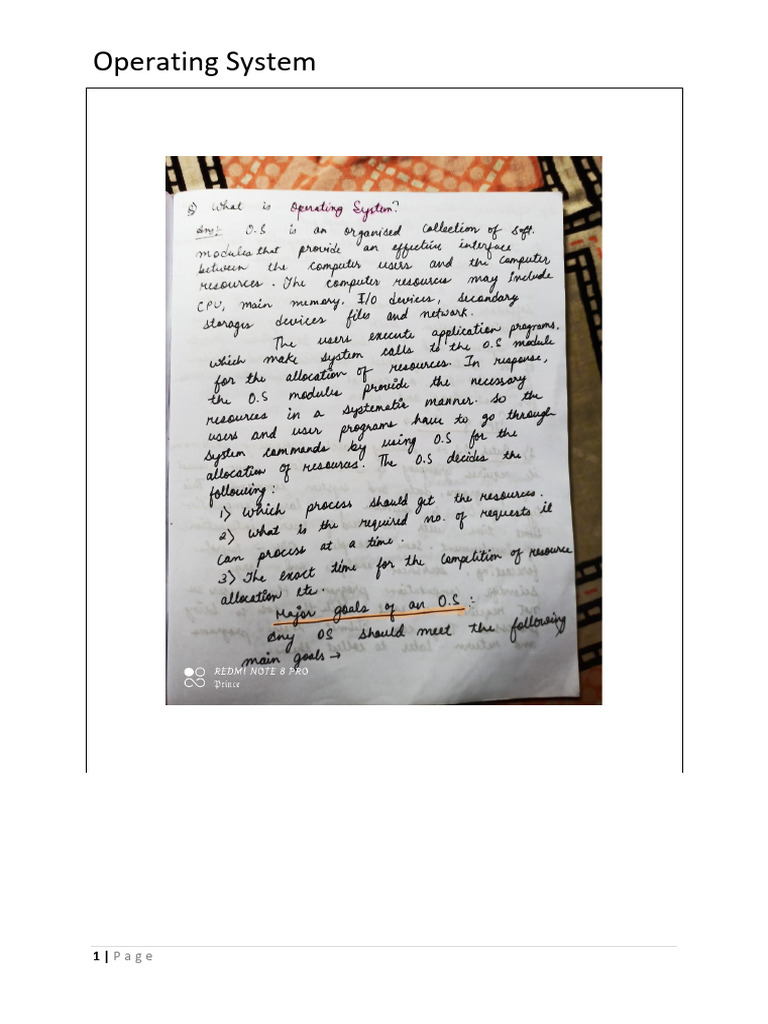 Operating System
Q) What is Operating System?
Ans:- O.S is an organised collection of soft.
modules that provide an effective interface
between the computer users and the computer
resources. The computer resources may include
CPU, main memory. I/O devices, secondary
storages devices files and network.
The users execute application programs.
which make system calls to the O.S module
for the allocation of resources. In response,
the O.S modules provide the necessary
resources in a systematic manner. So the
users and user programs have to go through
system commands by using O.S for the
allocation of resources. The O.S decides the
following:
1) Which process should get the resources.
2) What is the required no. of requests it
can process at a time.
3) The exact time for the competition of resource
allocation etc.
Major goals of an O.S :-
Any OS should meet the following
main goals →
REDMI NOTE 8 PRO
Prince
1 | Page